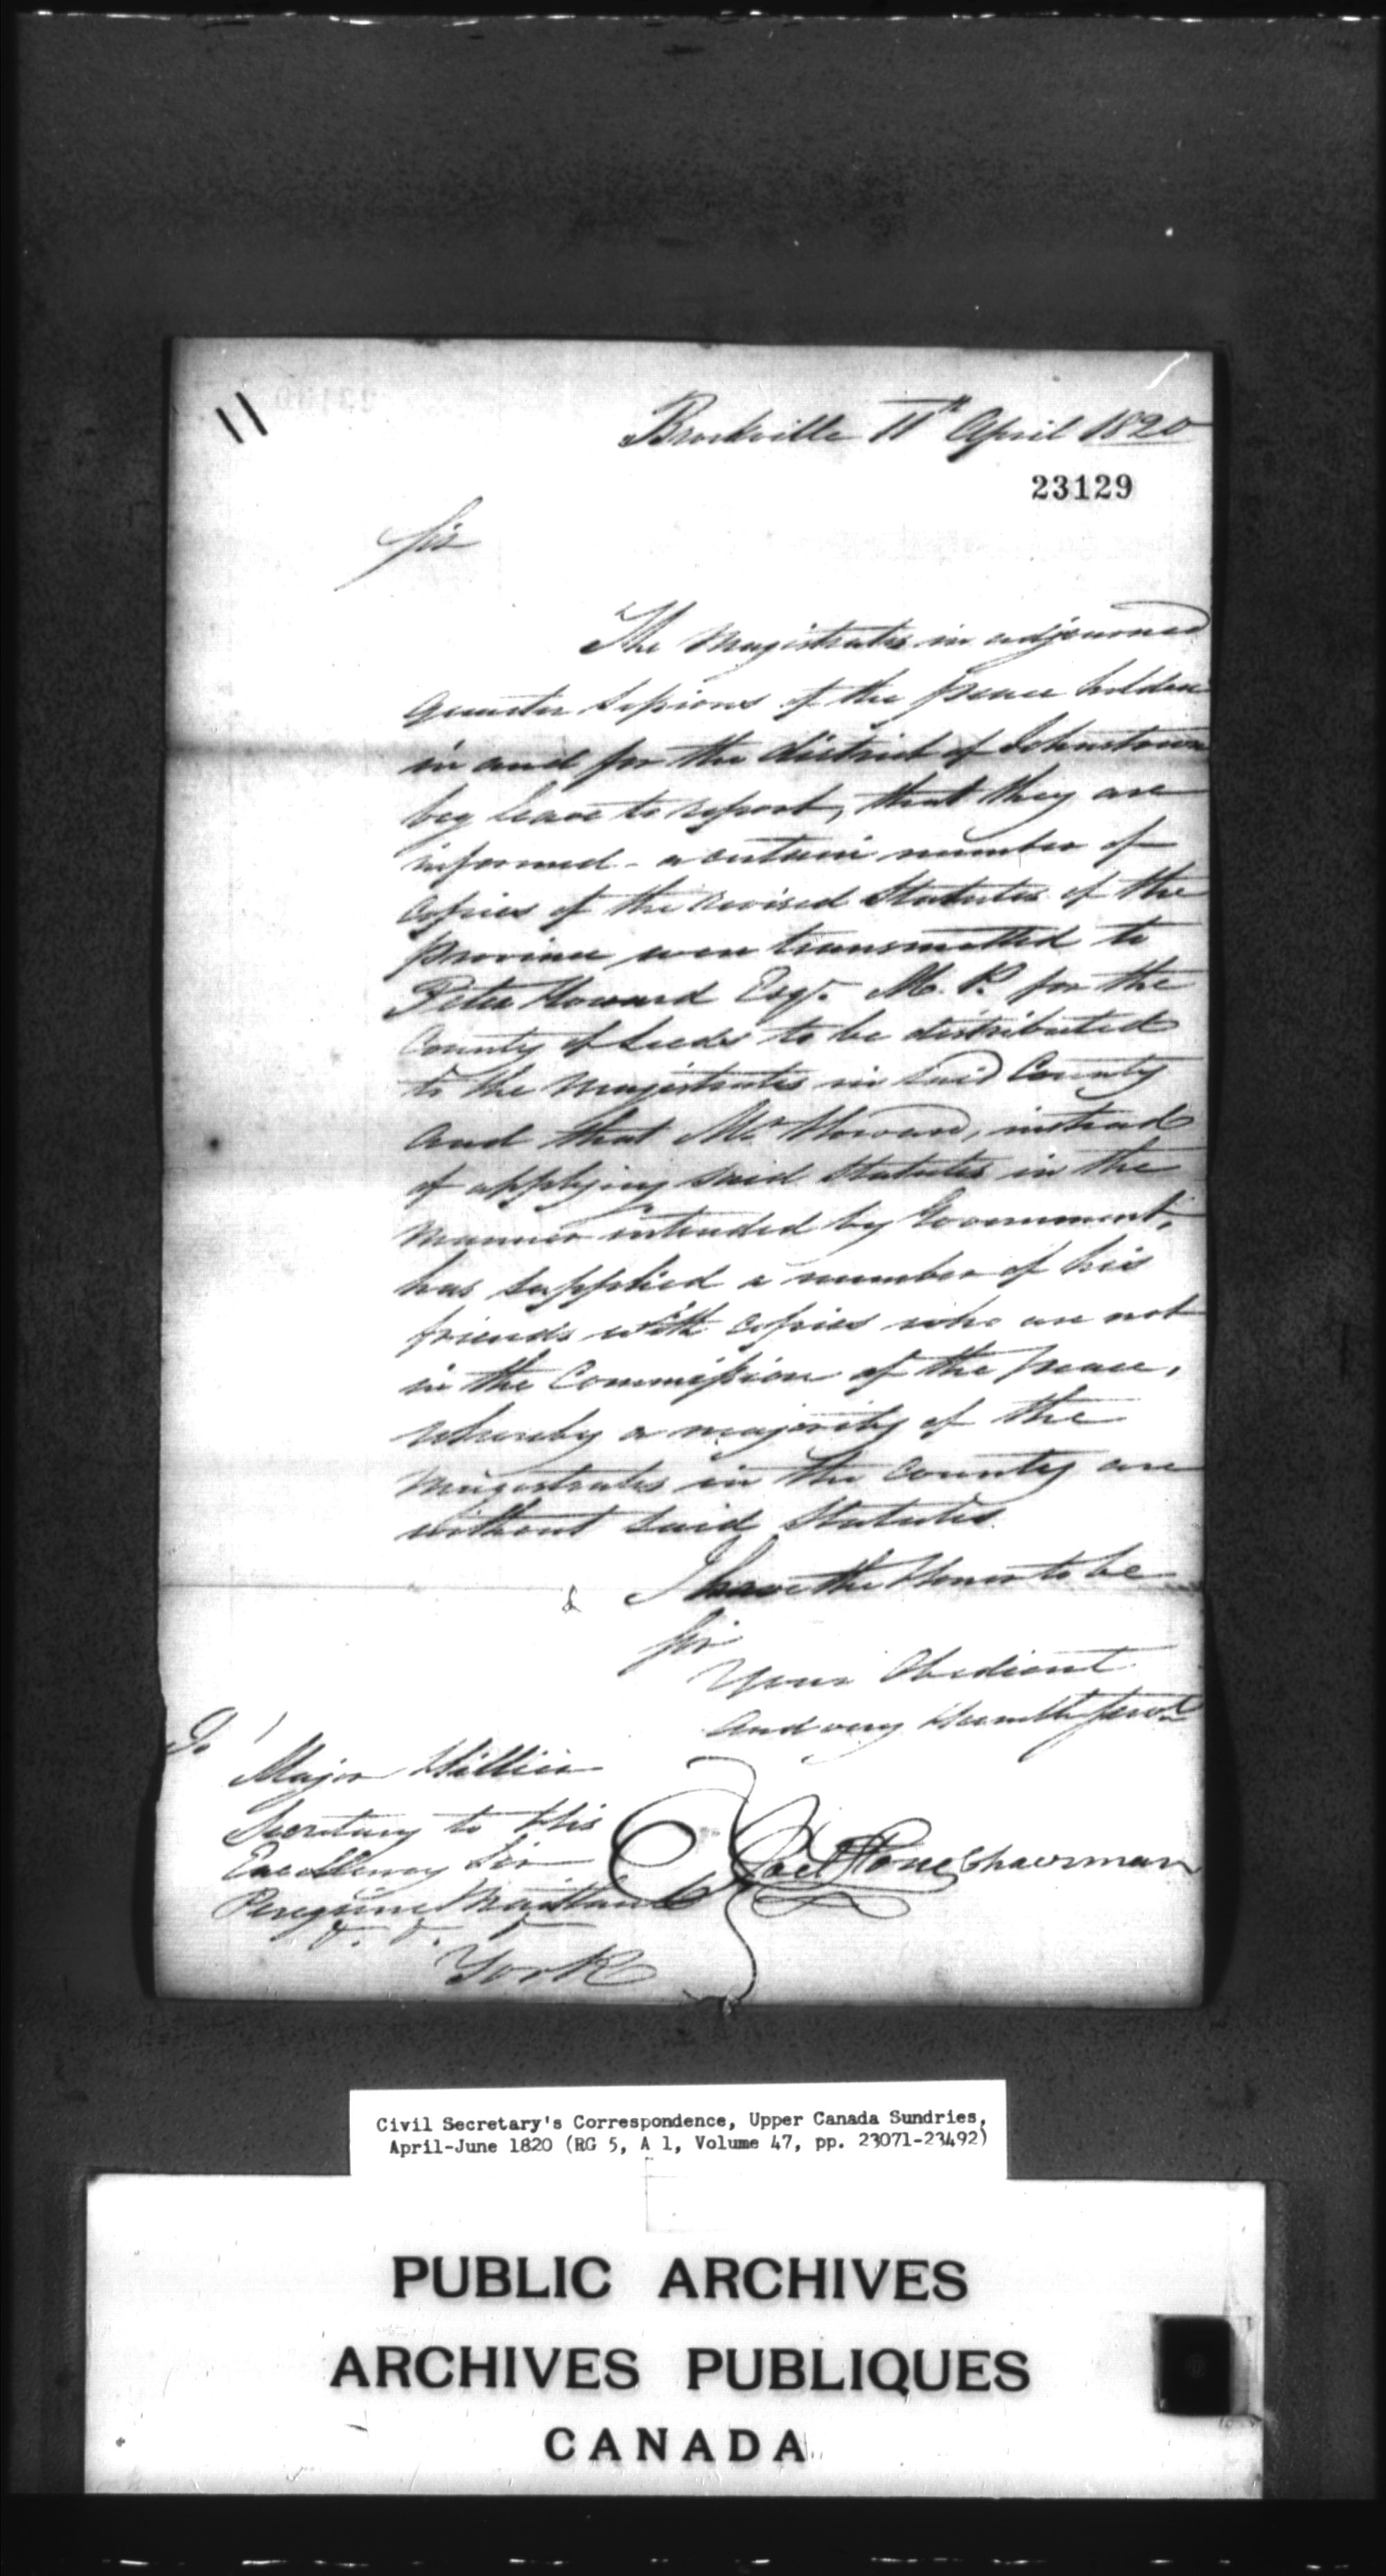 11
Brockville 11th April 1820
23129
Sir
The Magistrates in adjourned
Quarter Sessions of the peace holden
in and for the district of Johnstown
beg leave to report, that they are
informed - a certain number of
Copies of the revised Statutes of the
province were transmitted to
Peter Howard Esqr. M. P. for the
County of Leeds to be distributed
to the Magistrates in said County
and that Mr Howard, instead
of applying said Statutes in the
manner intended by Government,
has supplied a number of his
friends with copies who are not
in the Commission of the peace,
whereby a majority of the
Magistrates in the County are
without said Statutes.
I have the Honor to be
Sir
Your Obedient
and very Humble Servt
To
Major Hillier
Secretary to His
Excellency Sir
Peregrine Maitland
&. &. &
York
Joel Stone Chairman
Civil Secretary's Correspondence, Upper Canada Sundries,
April-June 1820 (RG 5, A 1, Volume 47, pp. 23071-23492)
PUBLIC ARCHIVES
ARCHIVES PUBLIQUES
CANADA